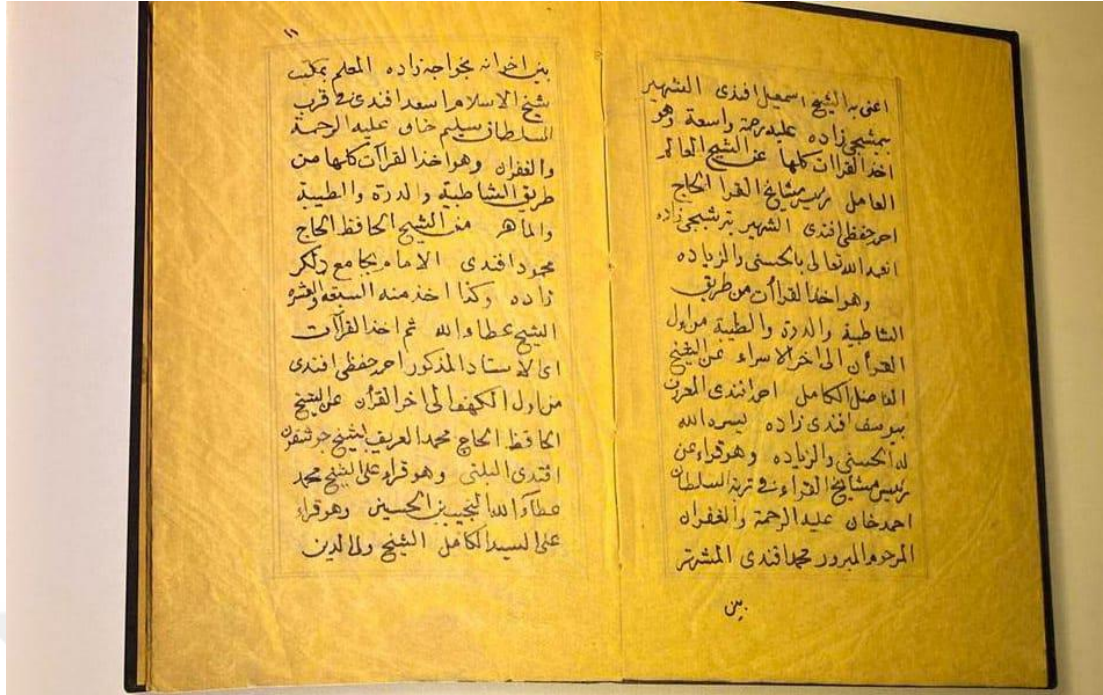 اعنى به الشيخ اسمعيل افندى الشهير
بمشجى زاده عليه رحمة واسعة وهو
اخذ القراات كلها عن الشيخ العالم
العامل رئيس مشايخ القرا الحاج
احمد حفظى افندى الشهير بترشيجى زاده
انعمه الله تعالى بالحسنى والزياده
وهو اخذ القراآت من طريق
الشاطبية والدرة والطيبة من اول
القرأن الى اخر الاسراء عن الشيخ
الفاضل الكامل احمد افندى المعروف
بيوسف افندى زاده يسره الله
له الحسنى والزياده وهو قراء عن
رئيس مشايخ القراء فى تربة السلطان
احمد خان عليه الرحمة والغفران
المرحوم المبرور محمد افندى المشتهر
بين
١١
بين اخوانه بخواجه زاده المعلم بمكتب
شيخ الاسلام اسعد افندى فى قرب
السلطان سليم خان عليه الرحمة
والغفران وهو اخذ القراآت كلها من
طريق الشاطبية والدرة والطيبة
والماهر من الشيخ الحافظ الحاج
محمود افندى الامام بجامع دلكر
زاده وكذا اخذ منه السبعة والعشرة
الشيخ عطاء الله ثم اخذ القراآت
اى الاستاد المذكور احمد حفظى افندى
من اول الكهف الى اخر القرأن عن الشيخ
الحافظ الحاج محمد العريف بشيخ
افندى البلتى وهو قراء على الشيخ محمد
عطاء الله النجيب بن الحسين وهو قراء
على السيد الكامل الشيخ ولى الدين